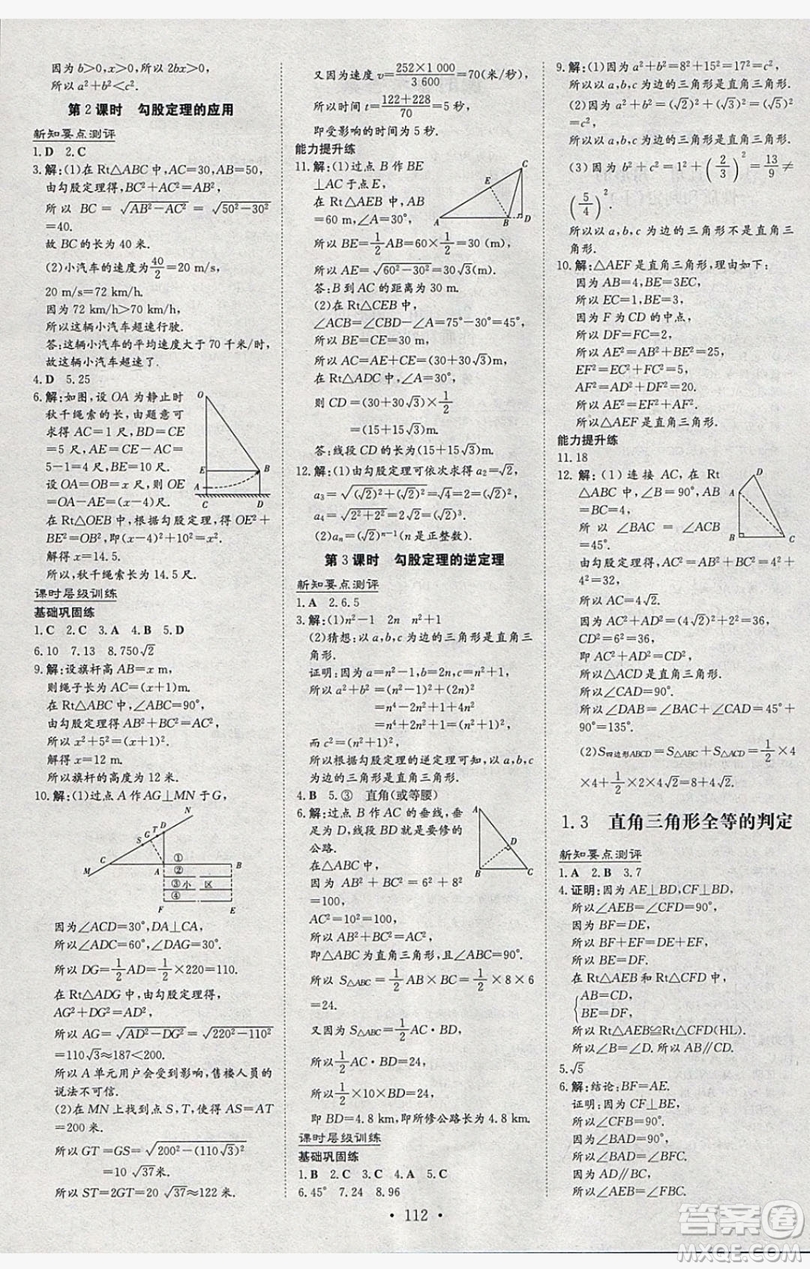 因为b>0,x>0,所以2bx>0,
所以a²+b²<c².
第2课时 勾股定理的应用
新知要点测评
1.D 2.C
3.解:(1)在Rt△ABC中,AC=30,AB=50,
由勾股定理得,BC²+AC²=AB²,
所以 BC = √(AB²−AC²) = √(50²−30²)
=40.
故BC的长为40米.
(2)小汽车的速度为40/2=20 m/s,
20 m/s=72 km/h,
因为72 km/h>70 km/h,
所以这辆小汽车超速行驶.
答:这辆小汽车的平均速度大于70千米/
小时,故这辆小汽车超速了.
4.D 5.25
6.解:如图,设OA为静止时
秋千绳索的长,由题意可
求得AC=1尺,BD=CE
=5尺,AE=CE−AC=
5−1=4尺,BE=10尺.
设OA=OB=x尺,则
OE=OA−AE=(x−4)尺.
在Rt△OEB中,根据勾股定理,OE²+
BE²=OB²,即(x−4)²+10²=x²,
解得x=14.5.
所以,秋千绳索的长为14.5尺.
课时层级训练
基础巩固练
1.C 2.C 3.D 4.B 5.D
6.10 7.13 8.750√2
9.解:设旗杆高AB=x m,
则绳子长AC=(x+1)m.
在Rt△ABC中,∠ABC=90°,
由勾股定理得AB²+BC²=AC²,
所以x²+5²=(x+1)².
解得x=12,所以AB=12.
所以旗杆的高度为12米.
10.解:(1)过点A作AG⊥MN于点G,
N
T
S
G
M
C
D
A
B
①
②
③小 区
④
F
E
因为∠ACD=30°,DA⊥CA,
所以∠ADC=60°,∠DAG=30°.
所以DG=1/2AD=1/2×220=110.
在Rt△ADG中,由勾股定理得,
AG²+DG²=AD².
所以AG=√(AD²−DG²)=√(220²−110²)
=110√3≈187<200.
所以A单元用户会受到影响,售楼人员的
说法不可信.
(2)在MN上找到点S,T,使得AS=AT
=200米,
所以GT=GS=√(200²−(110√3)²)
=10√37米.
所以ST=2GT=20√37≈122米,
又因为速度v=(252×1 000)/3 600=70(米/秒),
所以时间t=(122+228)/70=5(秒).
即受影响的时间为5秒.
能力提升练
11.解:(1)过点B作BE
⊥AC于点E,
在Rt△AEB中,AB
=60 m,∠A=30°,
C
E
A
B
D
所以BE=1/2AB=60×1/2=30(m)
所以AE=√(60²−30²)=30√3(m).
答:B到AC的距离为30 m.
(2)在Rt△CEB中,
∠ACB=∠CBD−∠A=75°−30°=45°,
所以BE=CE=30 m,
所以AC=AE+CE=(30+30√3)m,
在Rt△ADC中,∠A=30°,
则CD=(30+30√3)×1/2
=(15+15√3)m.
答:线段CD长为(15+15√3)m.
12.解:(1)由勾股定理可依次求得a₂=√2,
a₃=√((√2)²+(√2)²)=2,
a₄=√(2²+2²)=2√2.
(2)aₙ=(√2)ⁿ⁻¹(n是正整数).
第3课时 勾股定理的逆定理
新知要点测评
1.A 2.6.5
3.解:(1)n²−1 2n n²+1
(2)猜想:以a,b,c为边的三角形是直角三
角形.
证明:因为a=n²−1,b=2n,c=n²+1,
所以a²+b²=(n²−1)²+(2n)²
=n⁴−2n²+1+4n²
=n⁴+2n²+1=(n²+1)².
而c²=(n²+1)²,
所以根据勾股定理的逆定理可知,以a,b,c
为边的三角形是直角三角形.
4.A 5.③ 直角(或等腰)
6.解:过点B作AC的垂线,垂
足为D,线段BD即为要修的
公路.
A
D
B
C
因为在△ABC中,
AB²+BC²=8²+6²=
100,
AC²=10²=100,
所以AB²+BC²=AC²,
即△ABC为直角三角形,且∠ABC=90°,
所以S△ABC=1/2×AB×BC=1/2×8×6
=24.
又因为S△ABC=1/2AC·BD,
所以1/2AC·BD=24.
所以1/2×10×BD=24,
即BD=4.8 km,即所修公路长为4.8 km.
课时层级训练
基础巩固练
1.B 2.C 3.D 4.A 5.C
6.45° 7.24 8.96
9.解:(1)因为a²+b²=8²+15²=17²=c²,
所以由a,b,c组成的三角形是直角三角形.
(2)因为a²+c²=(√2)²+(√2)²=2²=b²,
所以由a,b,c组成的三角形是直角三角形.
(3)因为b²+c²=1²+(2/3)²=13/9≠
(5/4)²=a²,
所以由a,b,c组成的三角形不是直角三
角形.
10.解:△AEF是直角三角形.理由如下:
因为AB=4,BE=3EC,
所以EC=1,BE=3,
因为F为CD的中点,
所以DF=FC=2,
所以EF²=EC²+CF²=1²+2²=5,
AF²=AD²+DF²=4²+2²=20,
AE²=AB²+BE²=4²+3²=25,
所以AE²=EF²+AF²,
所以△AEF是直角三角形.
能力提升练
11.18
12.解:(1)连接AC,在Rt
△ABC中,∠B=90°,
因为AB=BC=4,
所以∠BAC=∠ACB=
45°.
A
D
B
C
所以AC²=AB²+BC²=4²+
4²=32.
所以AC=4√2.
因为AD²+AC²=2²+(4√2)²=36,
CD²=6²=36,
所以AD²+AC²=CD²,
即△ACD为直角三角形,
所以∠CAD=90°.
所以∠BAD=∠BAC+∠CAD=45°+
90°=135°.
(2)S四边形ABCD=S△ABC+S△ACD=1/2×4
×4+1/2×2×4√2=8+4√2.
1.3 直角三角形全等的判定
新知要点测评
1.A 2.B 3.7
4.证明:因为AE⊥BD,CF⊥BD,
所以∠AEB=∠CFD=90°,
因为BF=DE,
所以BF+EF=DE+EF.
所以BE=DF.
在Rt△AEB和Rt△CFD中,
{AB=CD,
BE=DF,
所以Rt△AEB≌Rt△CFD(HL).
所以∠B=∠D.所以AB∥CD.
5.√5
6.解:结论:BF=AE.
证明:因为CF⊥AE,
所以∠BAD=90°,
所以∠BAD=∠BAF.
所以∠AEB=∠FBC.
· 112 ·
答案圈
MXQE.COM